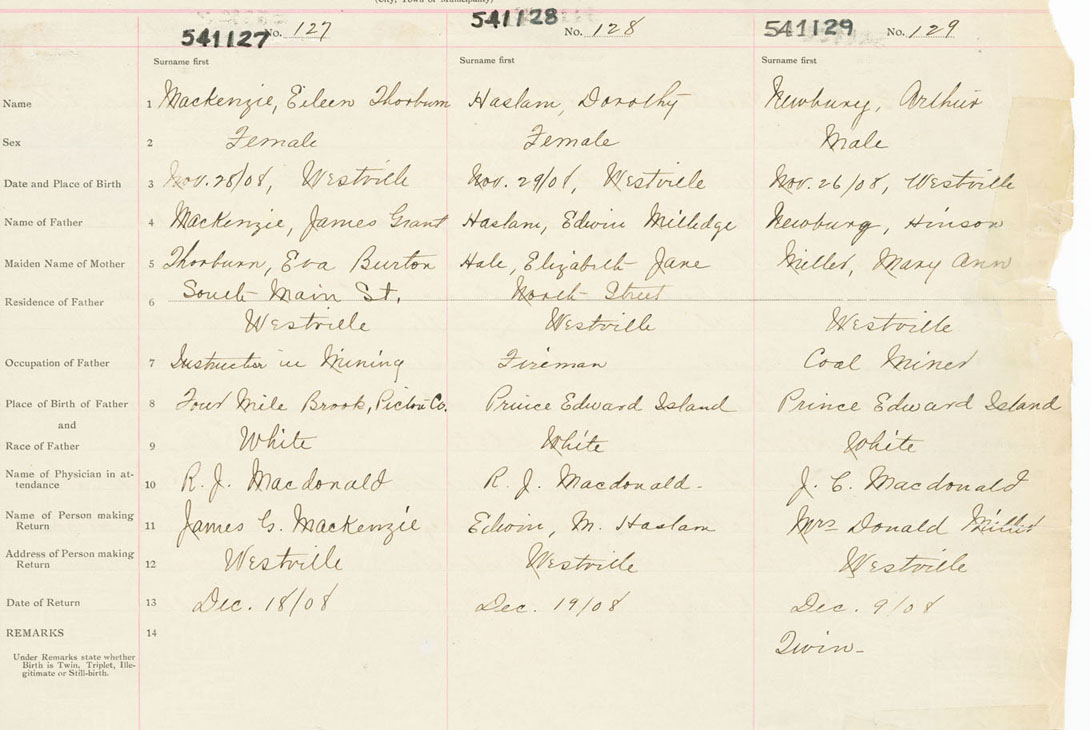 (City, Town or Municipality)
541127 No. 127 541128 No. 128 541129 No. 129
Surname first Surname first Surname first
Name 1 Mackenzie, Eileen Thorburn Haslam, Dorothy Newbury, Arthur
Sex 2 Female Female Male
Date and Place of Birth 3 Nov. 28/08, Westville Nov. 29/08, Westville Nov. 26/08, Westville
Name of Father 4 Mackenzie, James Grant Haslam, Edwin Milledge Newbury, Hinson
Maiden Name of Mother 5 Thorburn, Eva Burton Hale, Elizabeth Jane Miller, Mary Ann
Residence of Father 6 South Main St. North Street
Westville Westville Westville
Occupation of Father 7 Instructor in Mining Fireman Coal Miner
Place of Birth of Father 8 Four Mile Brook, Pictou Co. Prince Edward Island Prince Edward Island
and
Race of Father 9 White White White
Name of Physician in at-
tendance 10 R. J. Macdonald R. J. Macdonald- J. C. Macdonald
Name of Person making
Return 11 James G. MacKenzie Edwin, M. Haslam Mrs Donald Miller
Address of Person making
Return 12 Westville Westville Westville
Date of Return 13 Dec. 18/08 Dec. 19/08 Dec. 9/08
REMARKS 14 Twin-
Under Remarks state whether
Birth is Twin, Triplet, Ille-
gitimate or Still-birth.